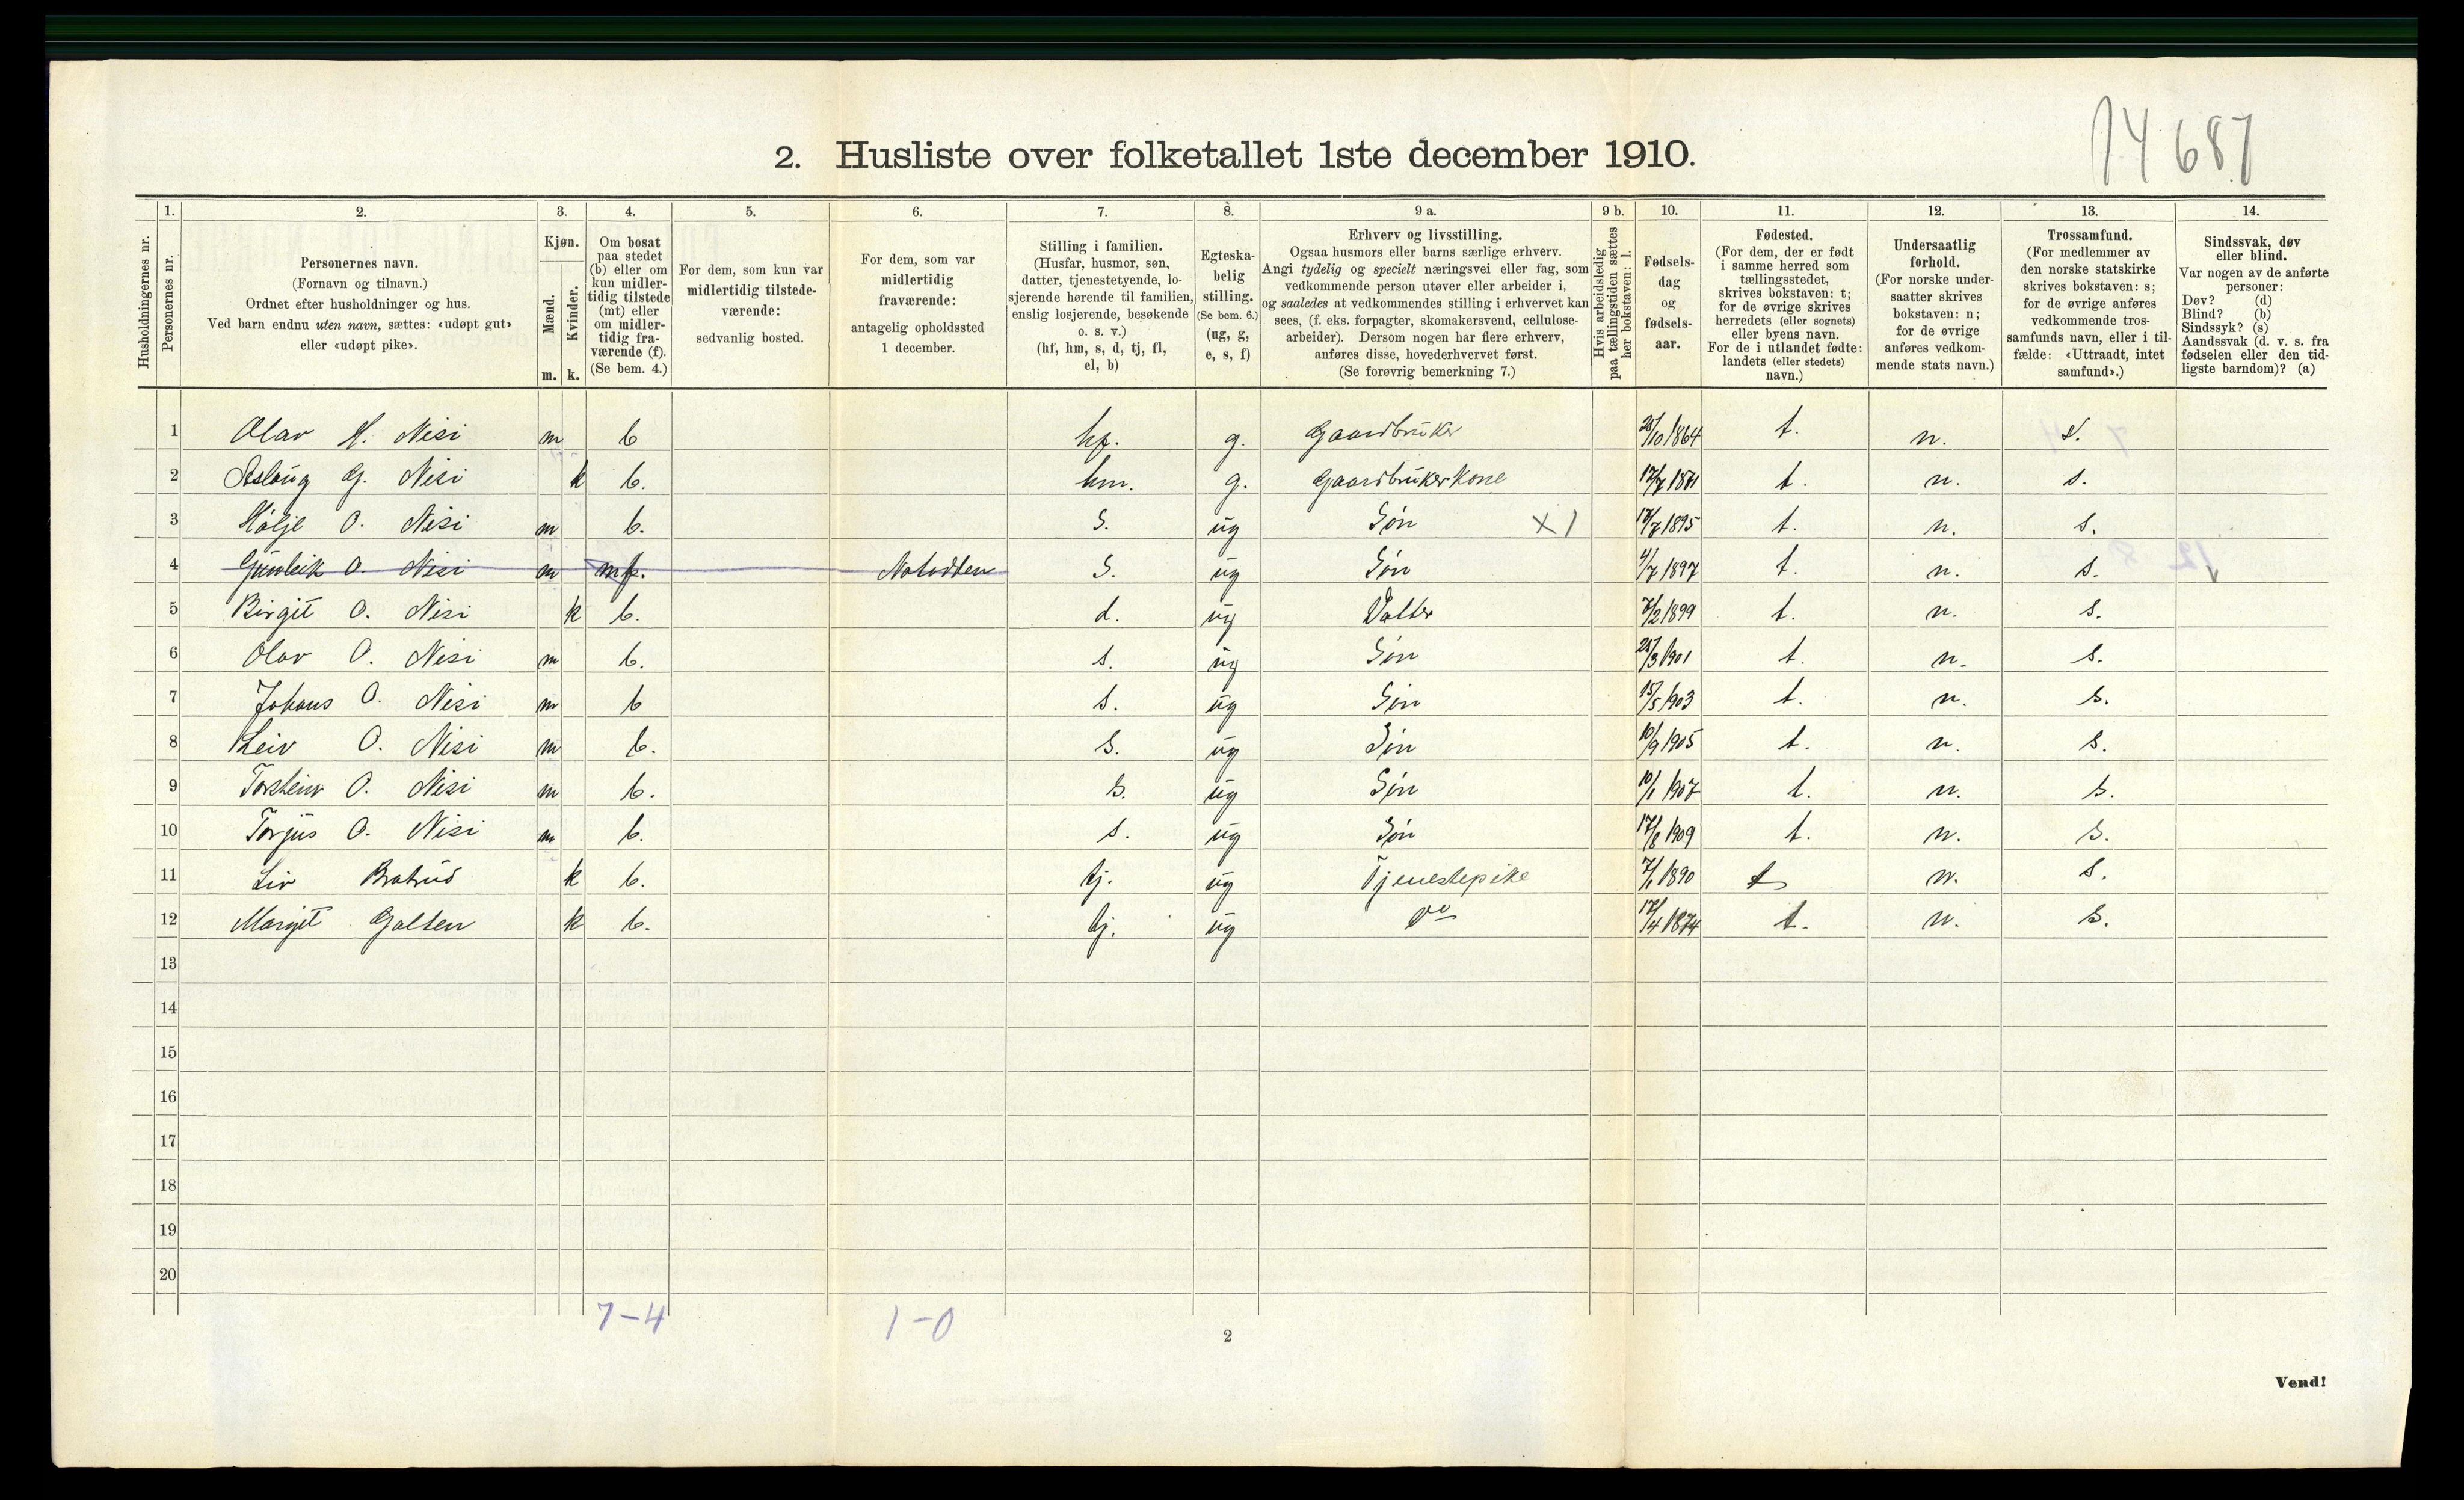 14 687
2. Husliste over folketallet 1ste december 1910.
Husholdningernes nr.
1. Personernes nr.
2. Personernes navn. (Fornavn og tilnavn.) Ordnet efter husholdninger og hus. Ved barn endnu uten navn, sættes: «udøpt gut» eller «udøpt pike».
3. Kjøn. Mænd. m. Kvinder. k.
4. Om bosat paa stedet (b) eller om kun midlertidig tilstede (mt) eller om midlertidig fraværende (f). (Se bem. 4.)
5. For dem, som kun var midlertidig tilstedeværende: sedvanlig bosted.
6. For dem, som var midlertidig fraværende: antagelig opholdssted 1 december.
7. Stilling i familien. (Husfar, husmor, søn, datter, tjenestetyende, losjerende hørende til familien, enslig losjerende, besøkende o. s. v.) (hf, hm, s, d, tj, fl, el, b)
8. Egteskabelig stilling. (Se bem. 6.) (ug, g, e, s, f)
9 a. Erhverv og livsstilling. Ogsaa husmors eller barns særlige erhverv. Angi tydelig og specielt næringsvei eller fag, som vedkommende person utøver eller arbeider i, og saaledes at vedkommendes stilling i erhvervet kan sees, (f. eks. forpagter, skomakersvend, cellulosearbeider). Dersom nogen har flere erhverv, anføres disse, hovederhvervet først. (Se forøvrig bemerkning 7.)
9 b. Hvis arbeidsledig paa tællingstiden sættes her bokstaven: l.
10. Fødselsdag og fødselsaar.
11. Fødested. (For dem, der er født i samme herred som tællingsstedet, skrives bokstaven: t; for de øvrige skrives herredets (eller sognets) eller byens navn. For de i utlandet fødte: landets (eller stedets) navn.)
12. Undersaatlig forhold. (For norske undersaatter skrives bokstaven: n; for de øvrige anføres vedkommende stats navn.)
13. Trossamfund. (For medlemmer av den norske statskirke skrives bokstaven: s; for de øvrige anføres vedkommende trossamfunds navn, eller i tilfælde: «Uttraadt, intet samfund».)
14. Sindssvak, døv eller blind. Var nogen av de anførte personer: Døv? (d) Blind? (b) Sindssyk? (s) Aandssvak (d. v. s. fra fødselen eller den tidligste barndom)? (a)
1 Olav H. Nisi m b hf. g. Gaardbruker 28/10 1864 t. n. s.
2 Aslaug G. Nisi k b. hm. g. Gaardbrukerkone 17/7 1871 t. n. s.
3 Hølje O. Nisi m b. S. ug Søn X1 17/7 1895 t. n. s.
4 Gunleik O. Nisi m f. Notodden S. ug Søn 4/7 1897 t. n. s.
5 Birgit O. Nisi k b. d. ug Datter 7/2 1899 t. n. s.
6 Olav O. Nisi m b. s. ug Søn 25/3 1901 t. n. s.
7 Johans O. Nisi m b s. ug Søn 15/5 1903 t. n. s.
8 Leiv O. Nisi m b. s. ug Søn 10/9 1905 t. n. s.
9 Torstein O. Nisi m b. s. ug Søn 10/1 1907 t. n. s.
10 Torjus O. Nisi m b. s. ug Søn 17/8 1909 t. n. s.
11 Liv Bratrud k b. tj. ug Tjenestepike 7/1 1890 t n. s.
12 Margit Galten k b. tj. ug Do 17/4 1874 t. n. s.
13
14
15
16
17
18
19
20
7-4 1-0
2
Vend!